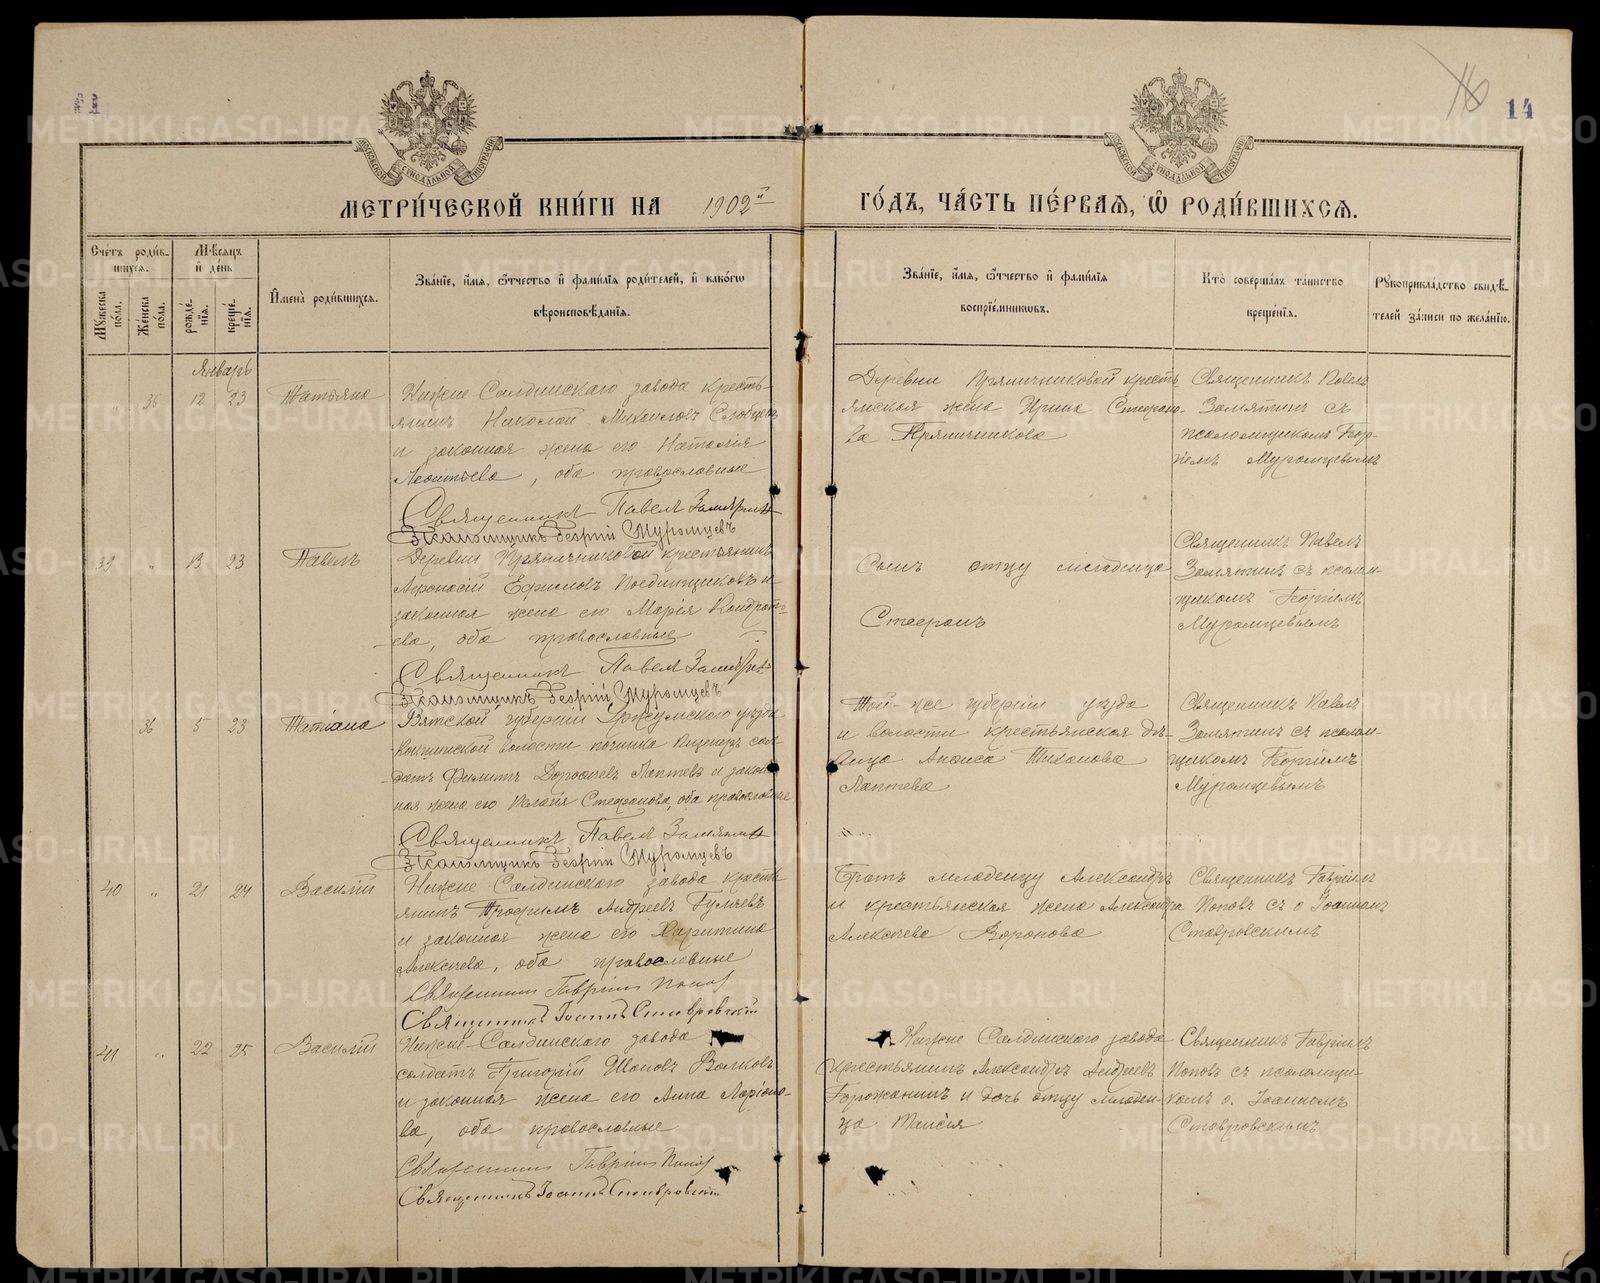 16
14
МЕТРИ́ЧЕСКОЙ КНИ́ГИ НА 1902й ГО́ДЪ, ЧА́СТЬ ПЕ́РВАЯ, Ѡ РОДИ́ВШИХСЯ.
Сче́тъ роди́в-
шихся.
Му́жеска по́ла.
Же́нска по́ла.
Мѣ́сяцъ
и де́нь
рожде́-
нїя.
креще́-
нїя.
И̓мена̀ роди́вшихся.
Зва́нїе, и́мя, ѻ҆́тчество и҆ фами́лїя роди́телей, и҆ како́гѡ
вѣроисповѣ́данїя.
Зва́нїе, и́мя, ѻ҆́тчество и҆ фами́лїя
воспрїе́мниковъ.
Кто̀ соверша́лъ та́инство
креще́нїя.
Рꙋкоприкла́дство свидѣ́-
телей за́писи по жела́нїю.
Январь
" 35 12 23 Татьяна
Нижне Салдинскаго завода кресть-
янинъ Николай Михаиловъ
и законная жена его Наталія
Леонтьева, оба православные
Священникъ Павелъ Замятинъ
Псаломщикъ Георгій Муромцевъ
Деревни Пряничниковой кресть
янская жена Ирина Стефано-
ва Пряничникова
Священникъ Павелъ
Замятинъ съ
псаломщикомъ Геор-
гіемъ Муромцевымъ
39 " 13 23 Павелъ
Деревни Пряничниковой крестьянинъ
Афонасій Ефимовъ Поединщиковъ и
законная жена его Марія Кондрать-
ева, оба православные
Священникъ Павелъ Замятинъ
Псаломщикъ Георгій Муромцевъ
Сынъ отцу младенца
Стефанъ
Священникъ Павелъ
Замятинъ съ псалом-
щикомъ Георгіемъ
Муромцевымъ
36 5 23 Татіана
Вятской губерніи Уржумскаго уѣзда
волости починка сол-
датъ Филиппъ Дорофеевъ Лаптевъ и закон-
ная жена его Пелагія Стефанова, оба православные
Священникъ Павелъ Замятинъ
Псаломщикъ Георгій Муромцевъ
Той-же губерніи уѣзда
и волости крестьянская дѣ-
вица Анфиса Тиханова
Лаптева
Священникъ Павелъ
Замятинъ съ псалом-
щикомъ Георгіемъ
Муромцевымъ
40 " 21 24 Василій
Нижне Салдинскаго завода кресть
янинъ Трофимъ Андреевъ
и законная жена его Харитина
Алексѣева, оба православные
Священникъ Гавріилъ Поповъ
Священникъ Іоаннъ Ставровскій
Братъ младенцу Александръ
и крестьянская жена Александра
Алексѣева Воронова
Священникъ Гавріилъ
Поповъ съ о Іоанномъ
Ставровскимъ
41 " 22 25 Василій
Нижне-Салдинскаго завода
солдатъ Григорій Волковъ
и законная жена его Анна Ларіоно-
ва, оба православные
Священникъ Гавріилъ Поповъ
Священникъ Іоаннъ Ставровскій
Нижне Салдинскаго завода
крестьянинъ Александръ Андреевъ
Горожанинъ и дочь отцу младен-
ца Таисія
Священникъ Гавріилъ
Поповъ съ псаломщи-
комъ о. Іоанномъ
Ставровскимъ
METRIKI.GASO-URAL.RU